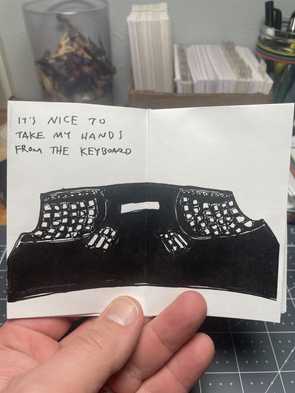 IT'S NICE TO
TAKE MY HANDS
FROM THE KEYBOARD